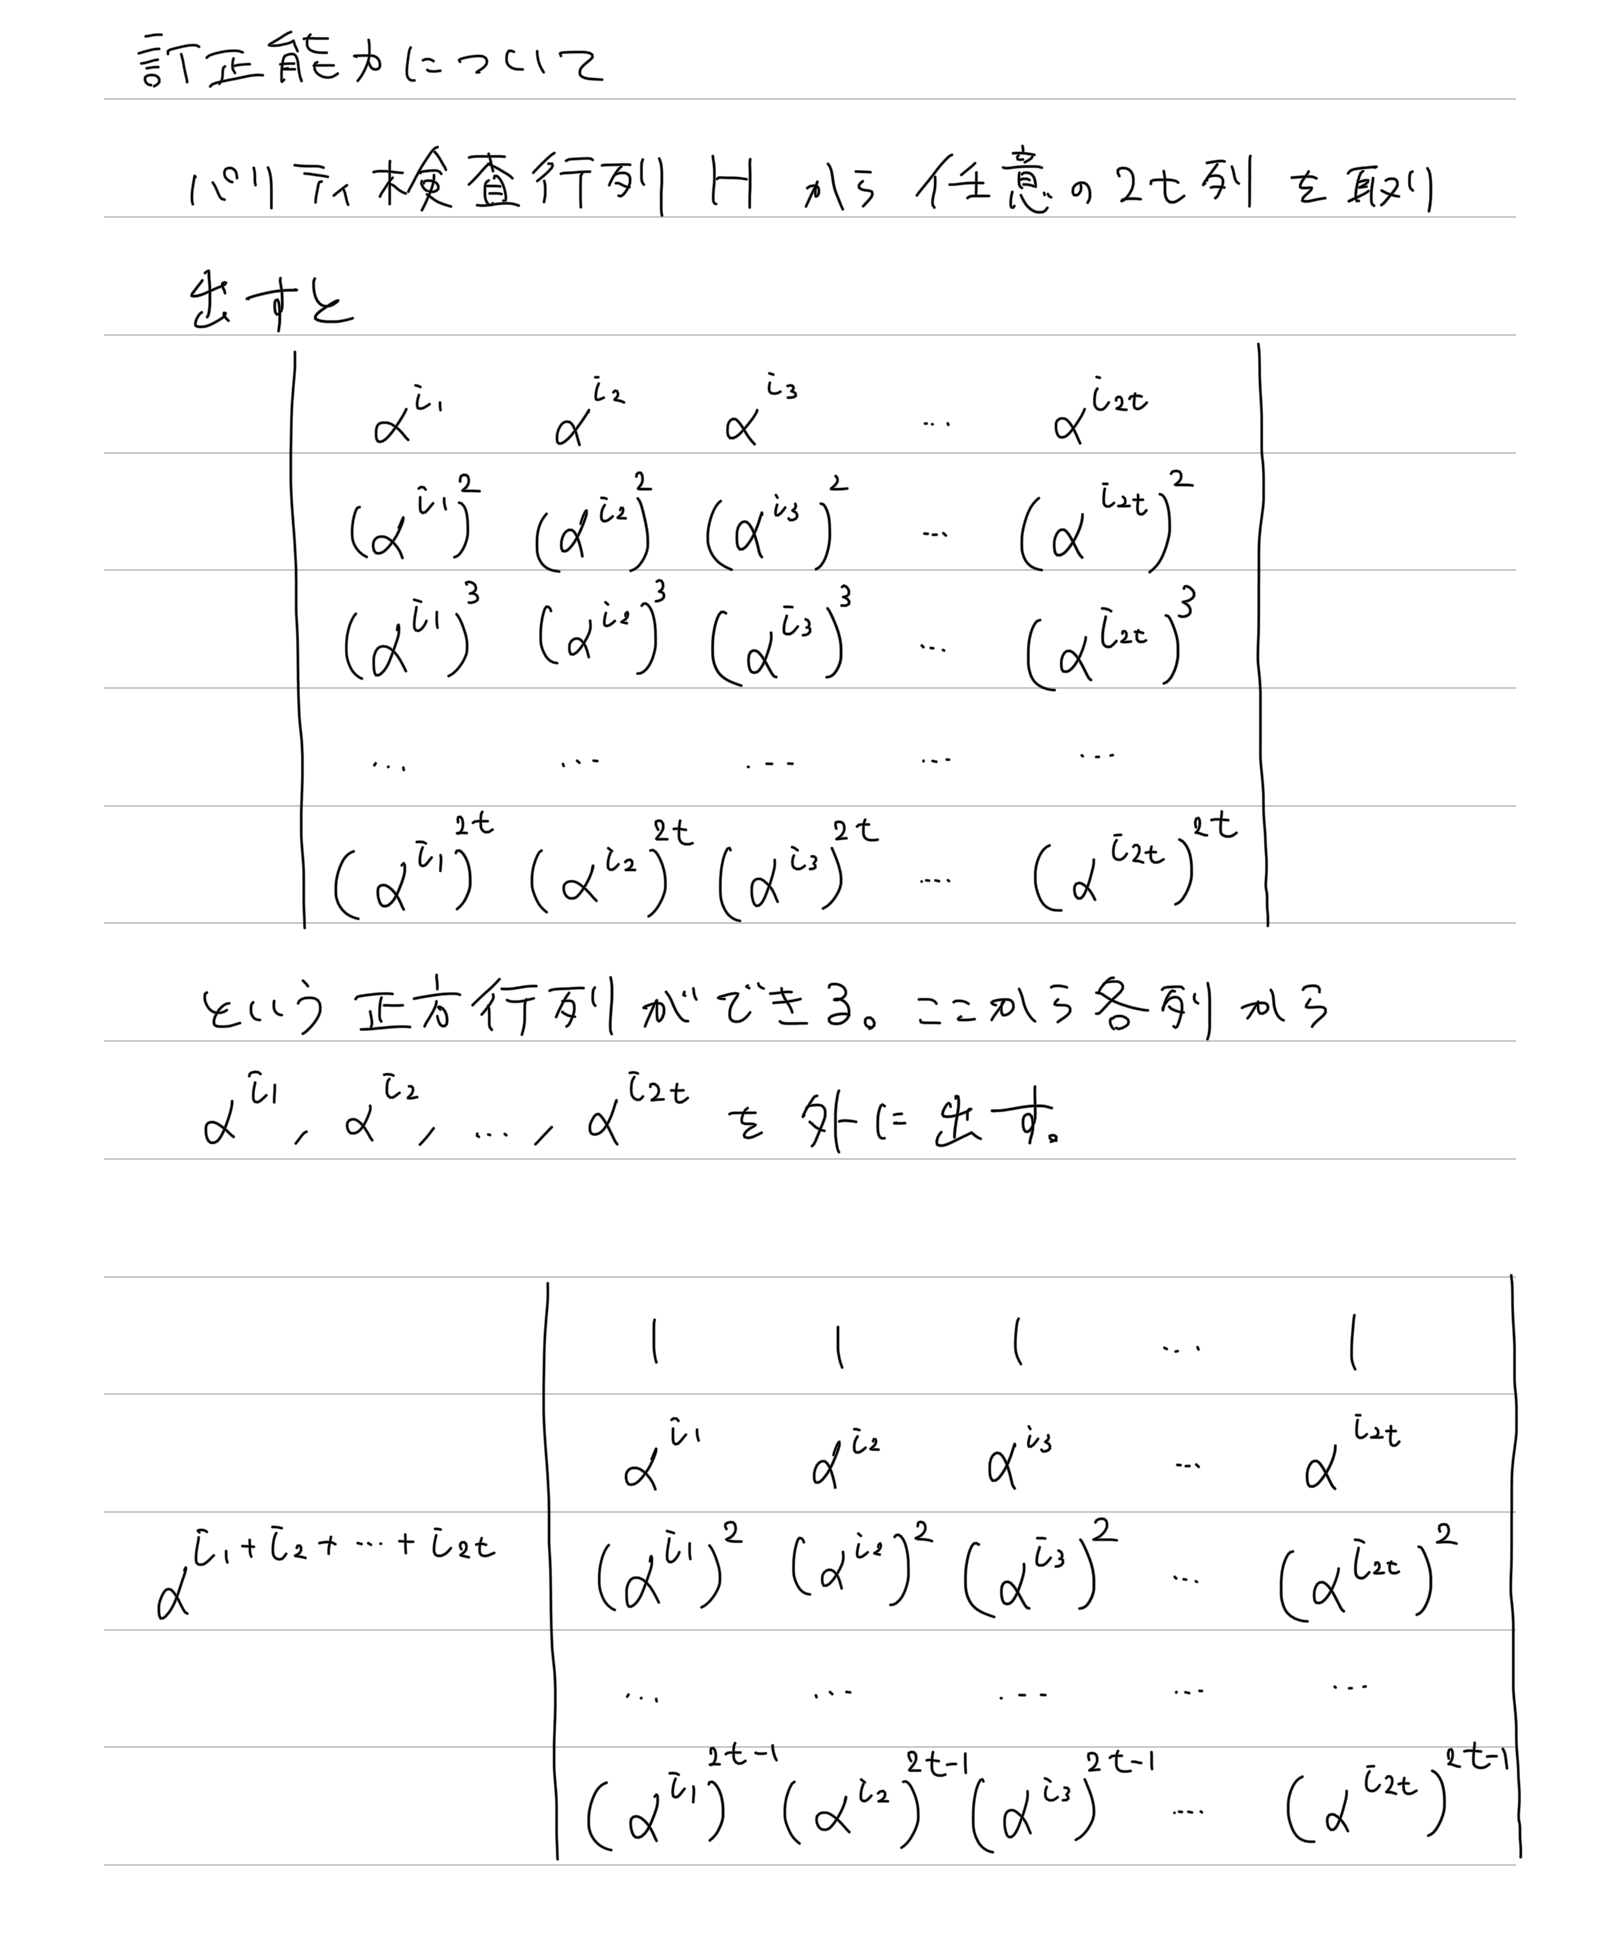 訂正能力について
パリティ検査行列 H から 任意の2t列を取り
出すと
α^{i_1} α^{i_2} α^{i_3} … α^{i_{2t}}
(α^{i_1})^2 (α^{i_2})^2 (α^{i_3})^2 … (α^{i_{2t}})^2
(α^{i_1})^3 (α^{i_2})^3 (α^{i_3})^3 … (α^{i_{2t}})^3
… … … … …
(α^{i_1})^{2t} (α^{i_2})^{2t} (α^{i_3})^{2t} … (α^{i_{2t}})^{2t}
という正方行列ができる。ここから各列から
α^{i_1}, α^{i_2}, …, α^{i_{2t}} を外に出す。
1 1 1 … 1
α^{i_1} α^{i_2} α^{i_3} … α^{i_{2t}}
α^{i_1+i_2+…+i_{2t}} (α^{i_1})^2 (α^{i_2})^2 (α^{i_3})^2 … (α^{i_{2t}})^2
… … … … …
(α^{i_1})^{2t-1} (α^{i_2})^{2t-1} (α^{i_3})^{2t-1} … (α^{i_{2t}})^{2t-1}